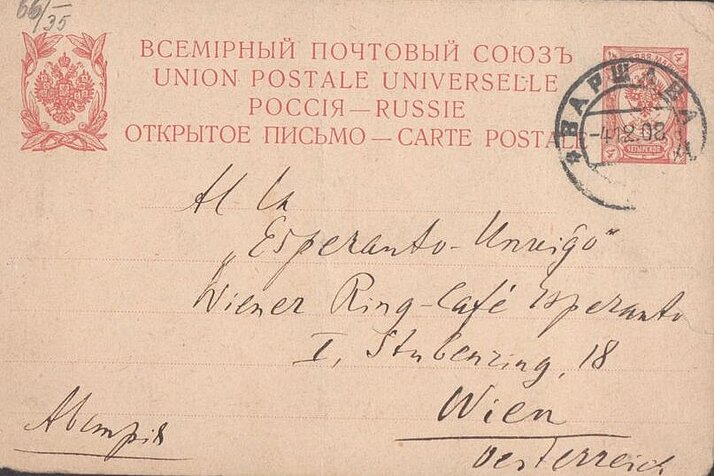 66/-
35
ВСЕМІРНЫЙ ПОЧТОВЫЙ СОЮЗЪ
UNION POSTALE UNIVERSELLE
РОССІЯ—RUSSIE
ОТКРЫТОЕ ПИСЬМО—CARTE POSTALE
4 4
ВАРШАВА
-4 12 08
4 ЧЕТЫРЕ КОП. 4
Al la
„Esperanto-Unuiĝo"
Wiener Ring-Café Esperanto
I, Stubenring, 18
Wien
Австрія
Oesterreich